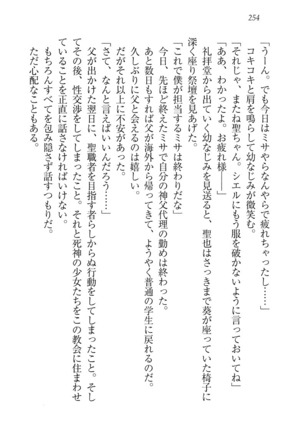 254
「うーん。でも今日はミサやらなんやらで疲れちゃったし……」
コキコキと肩を鳴らして幼なじみが微笑む。
「それじゃ、またね聖ちゃん。シエルにもう服を破かないように言っておいてね」
「ああ、わかったよ。お疲れ様――」
礼拝堂から出ていく幼なじみを見送ると、聖也はさっきまで葵が座っていた椅子に
深く座り祭壇を見あげた。
「これで僕が担当するミサは終わりだな」
今日、先ほど終えたミサで自分の神父代理の勤めは終わった。
あと数日もすれば父が海外から帰ってきて、ようやく普通の学生に戻れるのだ。
久しぶりに父と会えるのは嬉しい。
だがそれ以上に不安があった。
「さて、なんと言えばいいんだろう……」
父が出かけた翌日に、聖職者を目指す者らしからぬ行動をしてしまったこと。そし
てその後、性交渉をしてしまったこと。それと死神の少女たちをこの教会に住まわせ
ていることを正直に話さなければいけない。
もちろんすべてを包み隠さず話すつもりだ。
ただ心配なこともある。